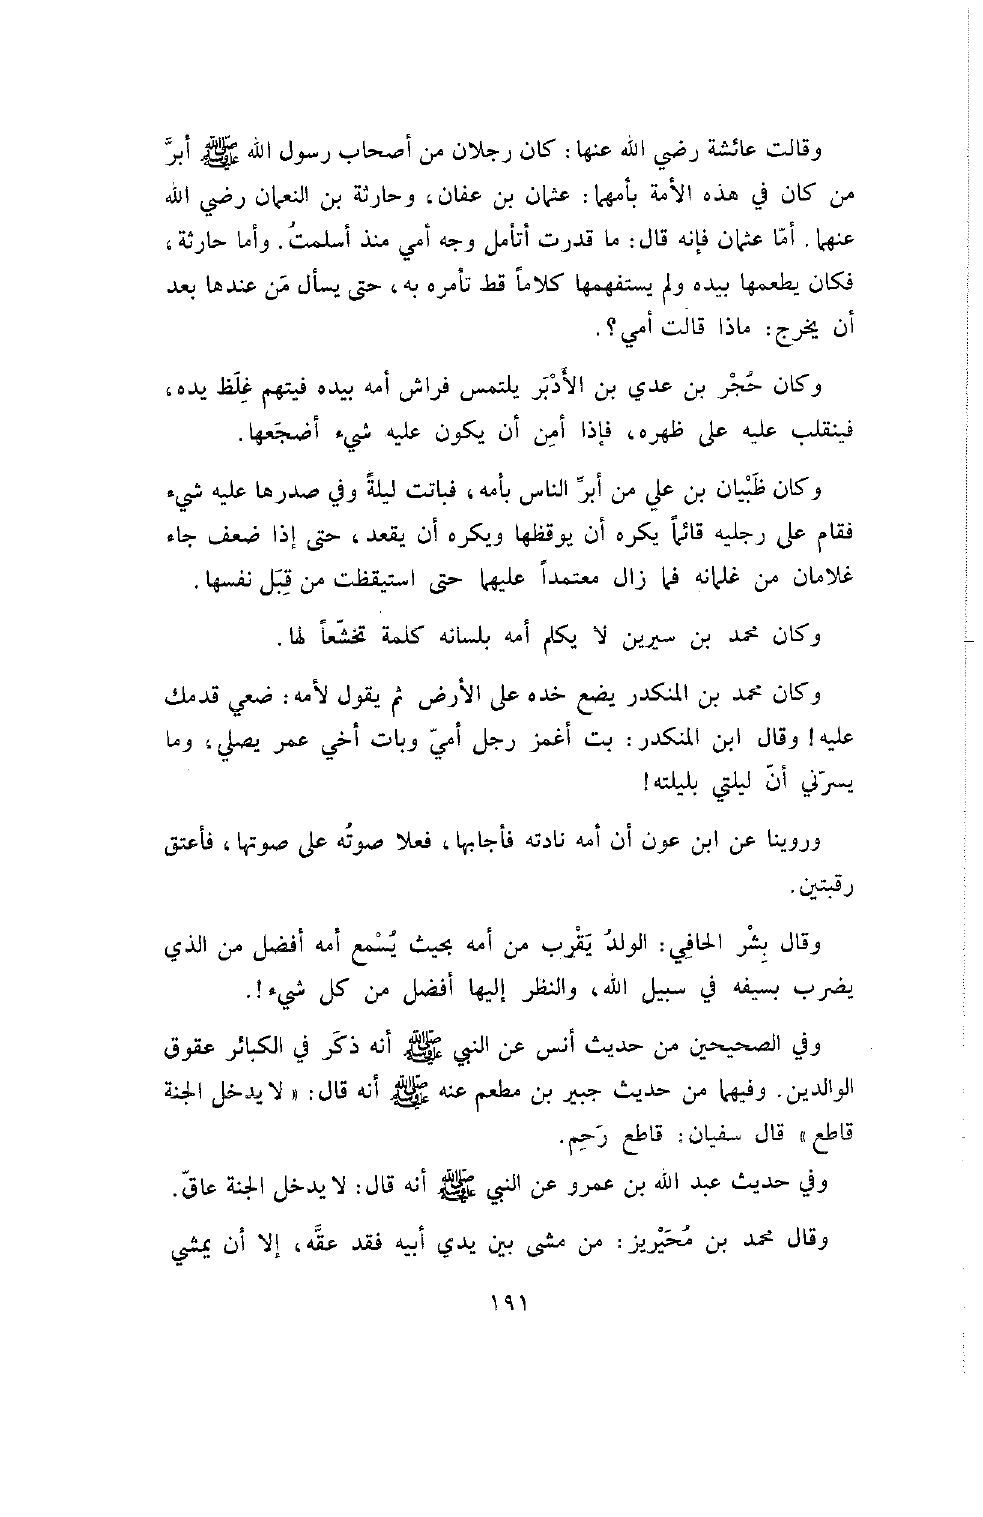 وقالت عائشة رضي الله عنها: كان رجلان من أصحاب رسول الله ﷺ أبرَّ
من كان في هذه الأمة بأمهما: عثمان بن عفان، وحارثة بن النعمان رضي الله
عنهما. أمّا عثمان فإنه قال: ما قدرت أتأمل وجه أمي منذ أسلمتُ. وأما حارثة،
فكان يطعمها بيده ولم يستفهمها كلاماً قط تأمره به، حتى يسأل مَن عندها بعد
أن يخرج: ماذا قالت أمي؟.
وكان حُجْر بن عدي بن الأَدْبَر يلتمس فراش أمه بيده فيتهم غِلَظ يده،
فينقلب عليه على ظهره، فإذا أمِن أن يكون عليه شيء أضجَعها.
وكان ظَبْيان بن علي من أبرِّ الناس بأمه، فباتت ليلةً وفي صدرها عليه شيء
فقام على رجليه قائماً يكره أن يوقظها ويكره أن يقعد، حتى إذا ضعف جاء
غلامان من غلمانه فما زال معتمداً عليهما حتى استيقظت من قِبَل نفسها.
وكان محمد بن سيرين لا يكلم أمه بلسانه كلمة تخشّعاً لها.
وكان محمد بن المنكدر يضع خده على الأرض ثم يقول لأمه: ضعي قدمك
عليه! وقال ابن المنكدر: بت أغمز رجل أميّ وبات أخي عمر يصلي، وما
يسرّني أنّ ليلتي بليلته!
وروينا عن ابن عون أن أمه نادته فأجابها، فعلا صوتُه على صوتها، فأعتق
رقبتين.
وقال بِشْر الحافِي: الولدُ يَقْرب من أمه بحيث يُسْمع أمه أفضل من الذي
يضرب بسيفه في سبيل الله، والنظر إليها أفضل من كل شيء!.
وفي الصحيحين من حديث أنس عن النبي ﷺ أنه ذكَر في الكبائر عقوق
الوالدين. وفيهما من حديث جبير بن مطعم عنه ﷺ أنه قال: « لا يدخل الجنة
قاطع » قال سفيان: قاطع رَحِم.
وفي حديث عبد الله بن عمرو عن النبي ﷺ أنه قال: لا يدخل الجنة عاقّ.
وقال محمد بن مُحَيْريز: من مشى بين يدي أبيه فقد عقَّه، إلا أن يمشي
١٩١